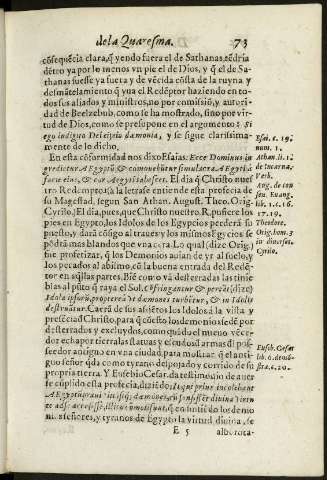 de la Quaresma. 73
cõsequẽcia clara, q̃ yendo fuera el de Sathanas, tẽdria
dẽtro ya por lo menos vn pie el de Dios, y q̃ el de Sa-
thanas fuesse ya fuera y de vécida cõsta de la ruyna, y
desmãtelamiento q̃ yua el Redẽptor haziendo en to-
dos sus aliados y ministros, no por comissiõ, y autori-
dad de Beelzebub, como se ha mostrado, sino por vir-
tud de Dios, como se presupone en el argumento: Si
ego in digito Dei eijcio dæmonia, y se sigue clarissima-
mente de lo dicho.
En esta cõformidad nos dixo Esaias: Ecce Dominus in
gredietur Ægyptũ & commouebũtur simulacra Ægypti à
facie eius, & cor Ægypti tabescet. El dia q̃ Christo nuestro
Redemptor, a la letra se entiende esta profecia de
su Magestad, segun San Athan. August. Theo. Orig.
Cyrilo, El dia, pues, que Christo nuestro R. pusiere los
pies en Egypto, los Idolos de los Egypcios perderã su
puesto, y darã cõsigo al traues y los mismos Egypcios se
põdrã mas blandos que vna cera. Lo qual (dize Orig.)
fue profetizar, q̃ los Demonios auian de yr al suelo, y
los pecados al abismo, cõ la buena entrada del Redẽ-
tor en aq̃llas partes. Biẽ como vã desterradas las tinie
blas al pũto q̃ raya el Sol. Cõfringantur & pereãt (dize)
Idola ipsorũ, propterea vt dæmones turbẽtur, & in Idolis
destruãtur. Caerã de sus asiẽtos los Idolos a la vista y
presẽcia de Christo, para q̃ cõesto los demonios
desterrados y excluydos, como quãdo el nueuo vẽce-
dor echa por tierra las statuas y escudos d armas dl pos-
seedor antiguo en vna ciudad, para mostrar q̃ el anti-
guo señor qda como tyrano despojado y corrido de su
propria tierra. Y Eusebio Cesar. da testimonio de auer
se cũplido esta profecia, diziẽdo:
tẽ ad se accessisse,
mis señores, y tyranos de Egypto la virtud diuina, se
E 5 alborota-
Esai. c. 19.
num. 1.
Athan. li. 1.
de Incarna.
Verb.
Aug. de con
sen. Euang.
lib. 1. c. 16.
17. 19.
Theodore.
Orig. hom. 3
in diuersos.
Cyrilo.
Euseb. Cesar
lib. 6. demõ-
stra. c. 20.